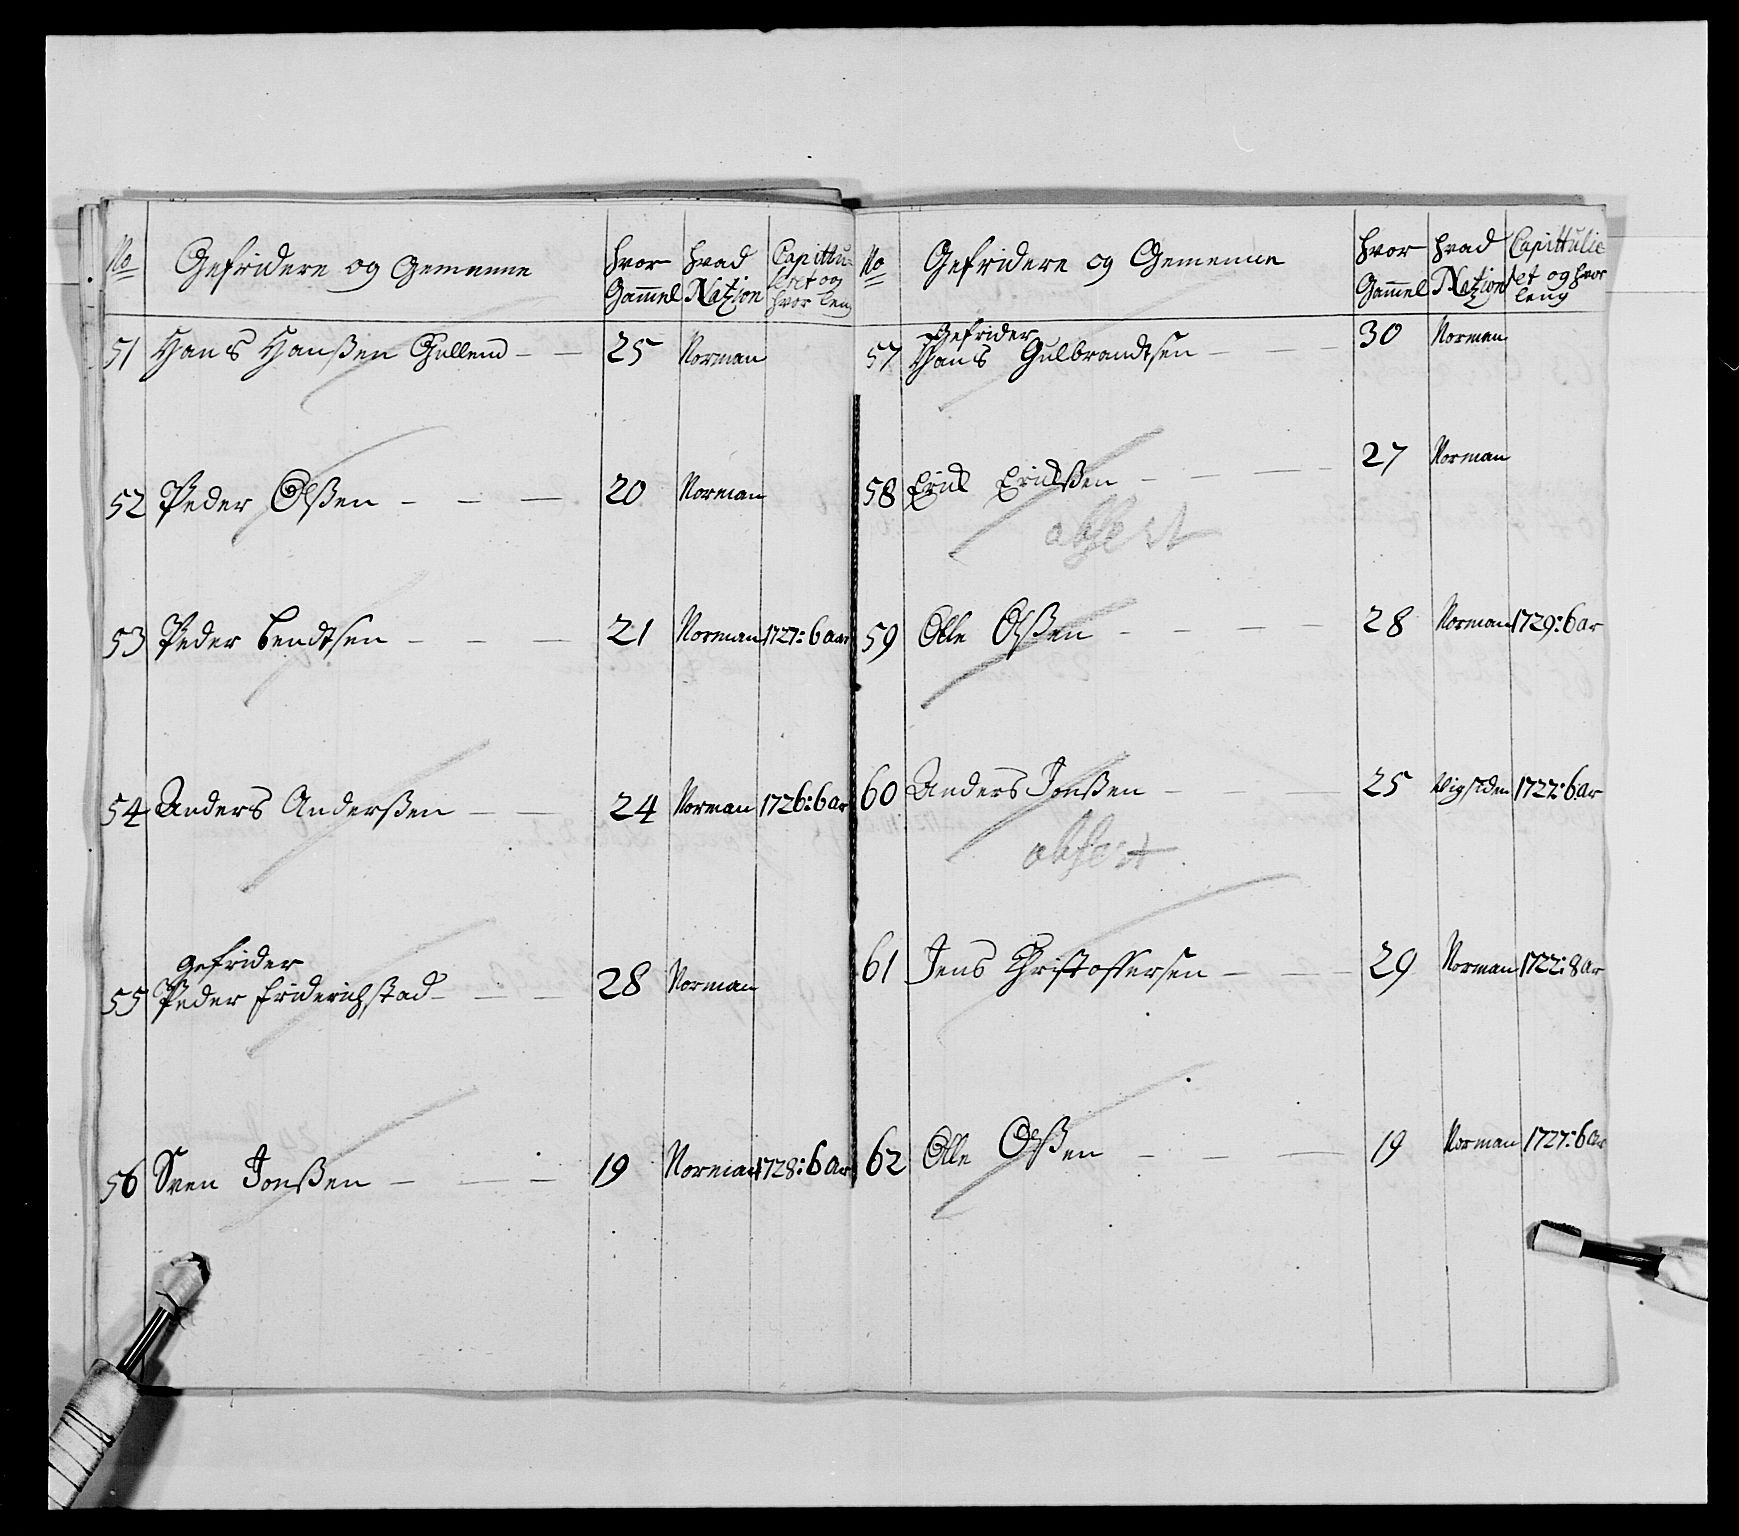 No Gefridere og Gemenne hvor Gammel hvad Nation Capittuleret og hvor leng
51 Hans Hanßen Gullend — — 25 Norman
52 Peder Olßen — — — 20 Norman
53 Peder Bendtsen — — — 21 Norman 1727: 6 aar
54 Anders Anderßen — — 24 Norman 1726: 6 ar
Gefrider
55 Peder Friderichstad — — — 28 Norman
56 Sven Jonßen — — — 19 Norman 1728: 6 ar
No Gefridere og Gemenne hvor Gammel hvad Nation Capittulieret og hvor leng
Gefrider
57 Hans Gulbrandtsen — — — 30 Norman
58 Erick Erichßen — — — — 27 Norman
absent
59 Olle Olßen — — — — 28 Norman 1729: 6 ar
60 Anders Jonßen — — — 25 1722: 6 ar
absent
61 Jens Christoffersen — — — 29 Norman 1722: 8 ar
62 Olle Olßen — — — — 19 Norman 1727: 6 ar